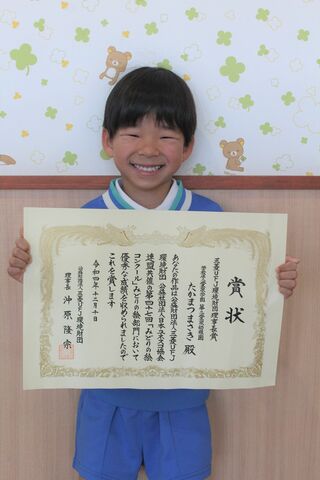 賞状
三菱UFJ環境財団理事長賞
たかまつまさき 殿
あなたの作品は公益財団法人三菱UFJ
環境財団 公益社団法人日本ユネスコ協会
連盟共催の第四十七回「みどりの絵
コンクール」みどりの絵部門において
優秀な成績を収められましたので
これを賞します
令和四年十二月十日
公益財団法人三菱UFJ環境財団
理事長 沖原隆宗